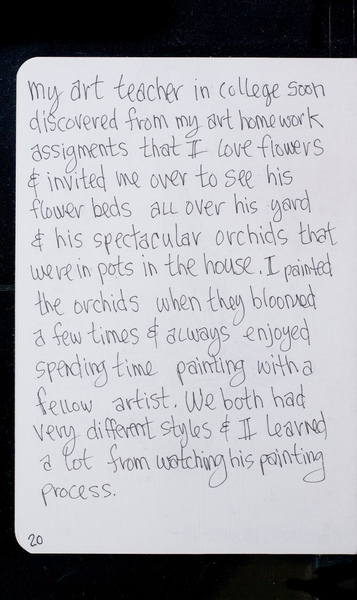 my art teacher in college soon
discovered from my art homework
assigments that I love flowers
& invited me over to see his
flower beds all over his yard
& his spectacular orchids that
were in pots in the house. I painted
the orchids when they bloomed
a few times & always enjoyed
spending time painting with a
fellow artist. We both had
very different styles & I learned
a lot from watching his painting
process.
20